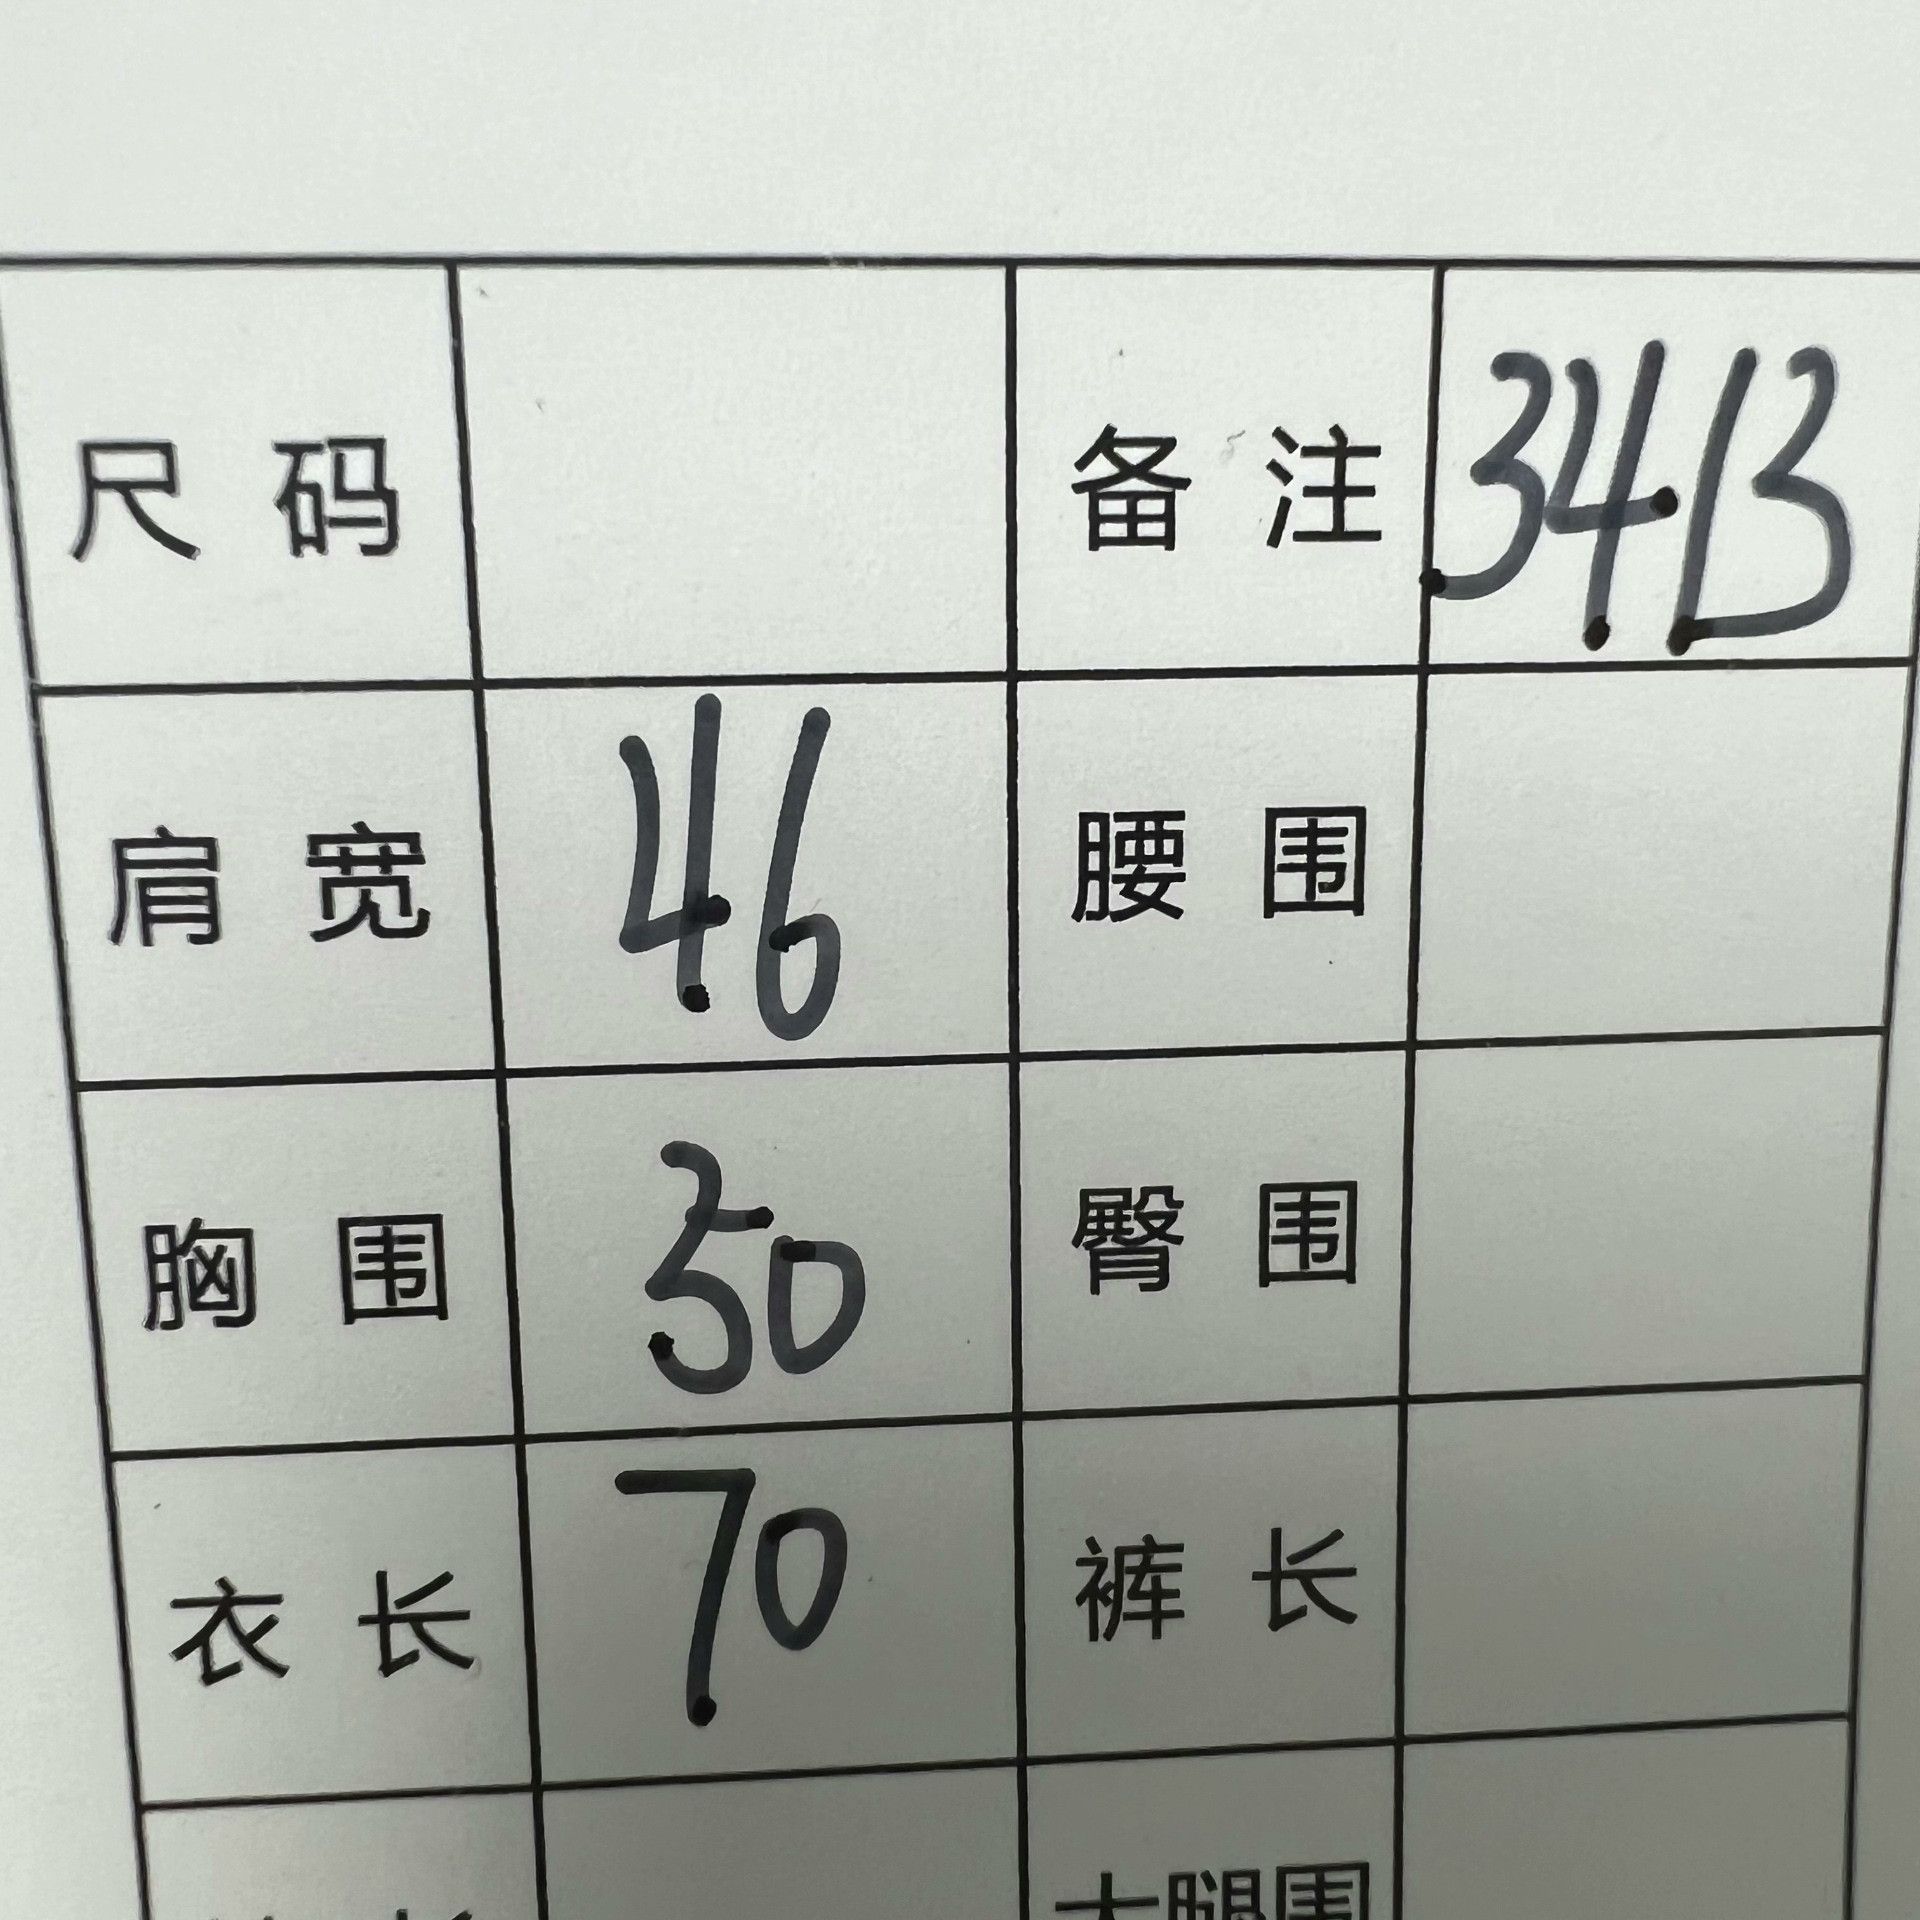 尺码 备注 3413
肩宽 46 腰围
胸围 50 臀围
衣长 70 裤长
大腿围